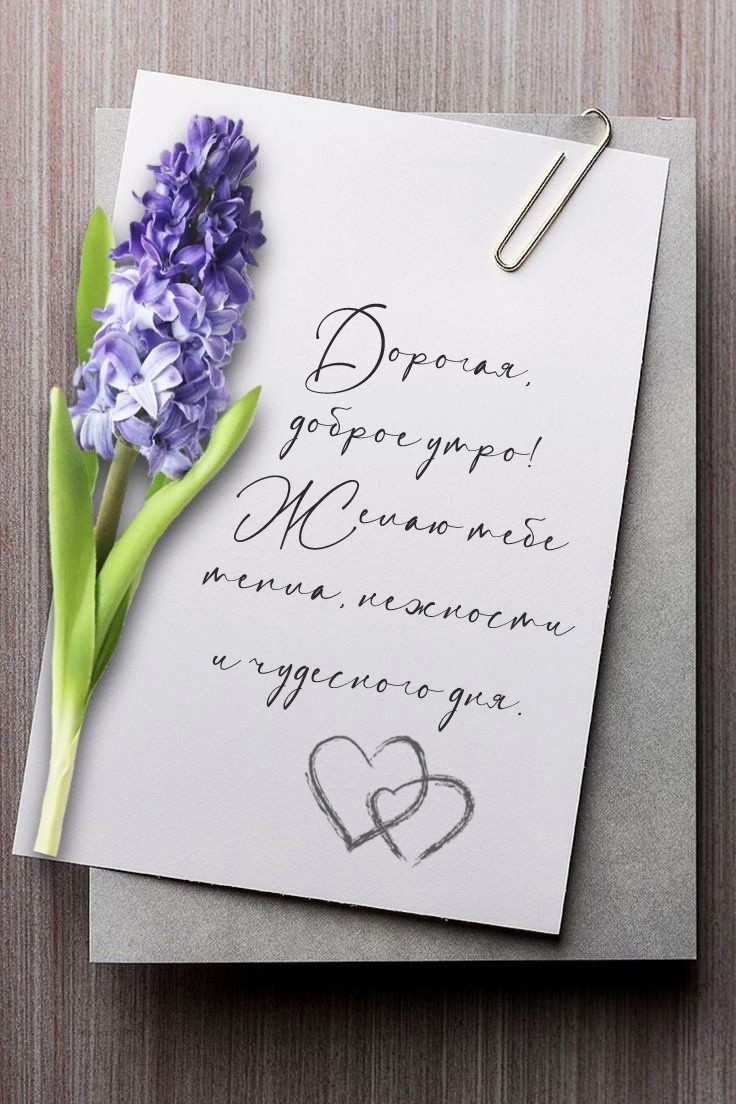 Дорогая,
доброе утро!
Желаю тебе
тепла, нежности
и чудесного дня.